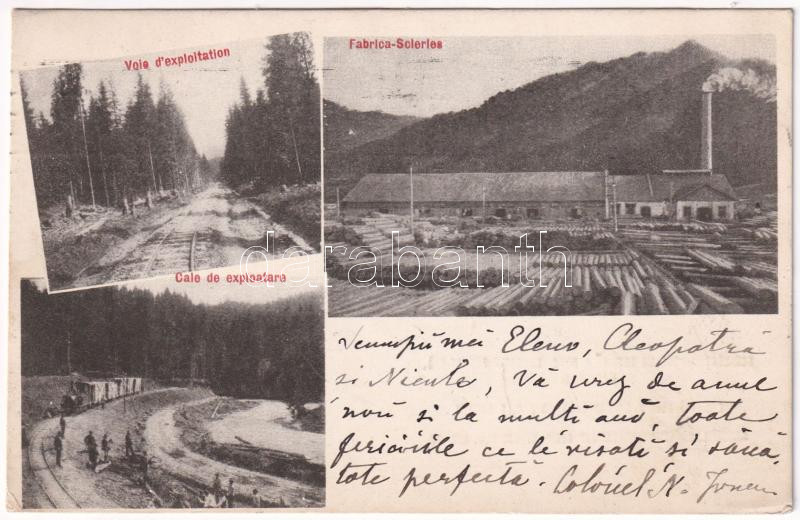 Voie d'exploitation
Fabrica-Scieries
Cale de exploatare
darabanth
Scumpii mei Elenv, Cleopatră
si Nicule, Vă urez de anul
noŭ si la multi anĭ, toate
fericirile ce le visati si sănă
tate perfectă. Colonel N.